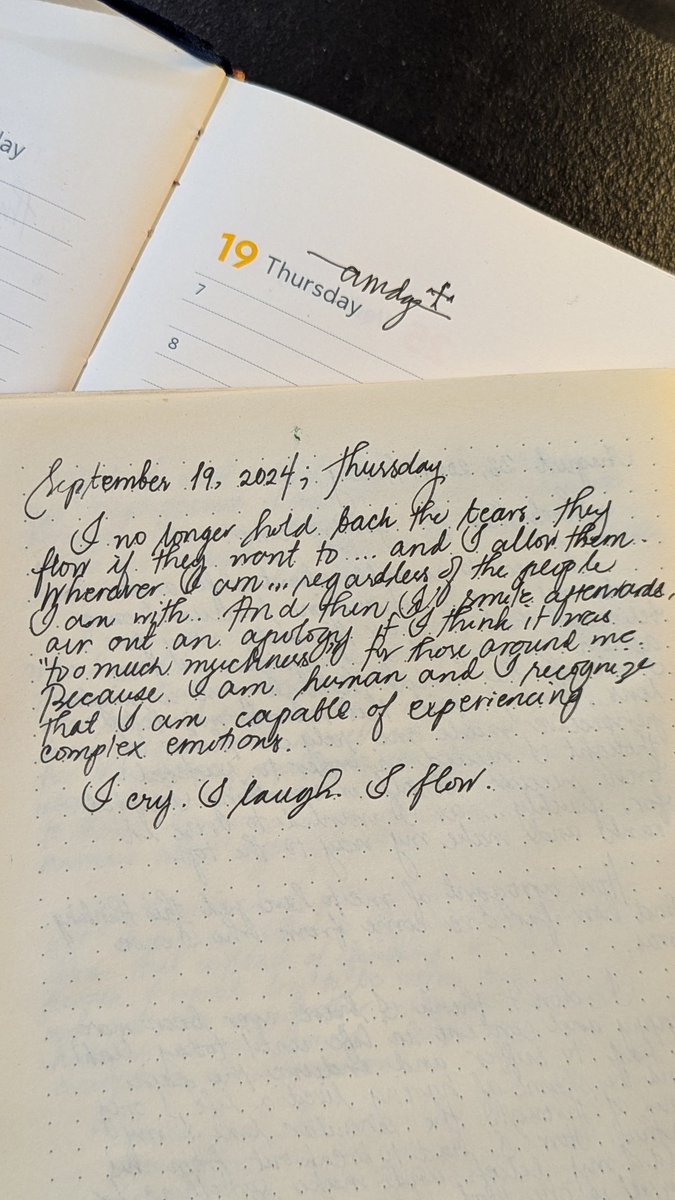 ay
19 Thursday
amdg+
7
8
September 19, 2024; Thursday
I no longer hold back the tears. They
flow if they want to... and I allow them.
Wherever I am... regardless of the people
I am with. And then I'll smile afterwards,
air out an apology if I think it was
"too much muchness" for those around me.
Because I am human and I recognize
that I am capable of experiencing
complex emotions.
I cry. I laugh. I flow.